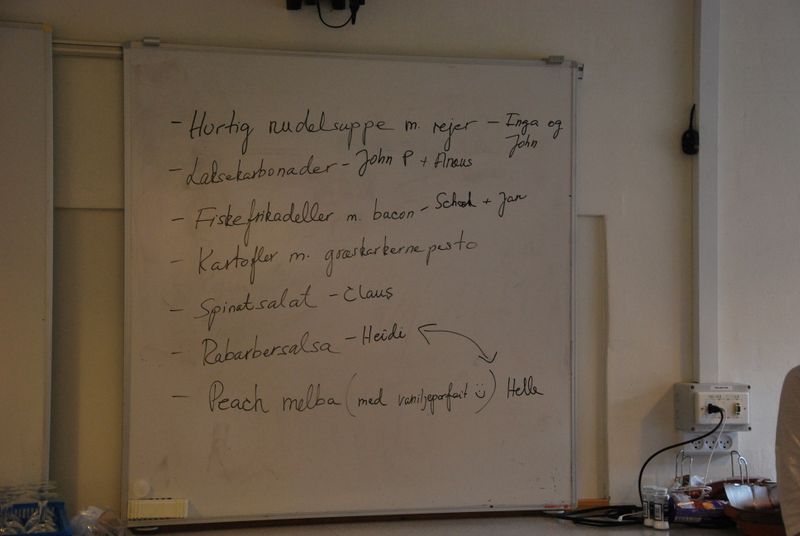 - Hurtig nudelsuppe m. rejer - Inga og John
- Laksekarbonader - John P +
- Fiskefrikadeller m. bacon - + Jan
- Kartofler m. græskarkernepesto
- Spinatsalat - Claus
- Rabarbersalsa - Heidi
- Peach melba (med vaniljeparfait ü) Helle